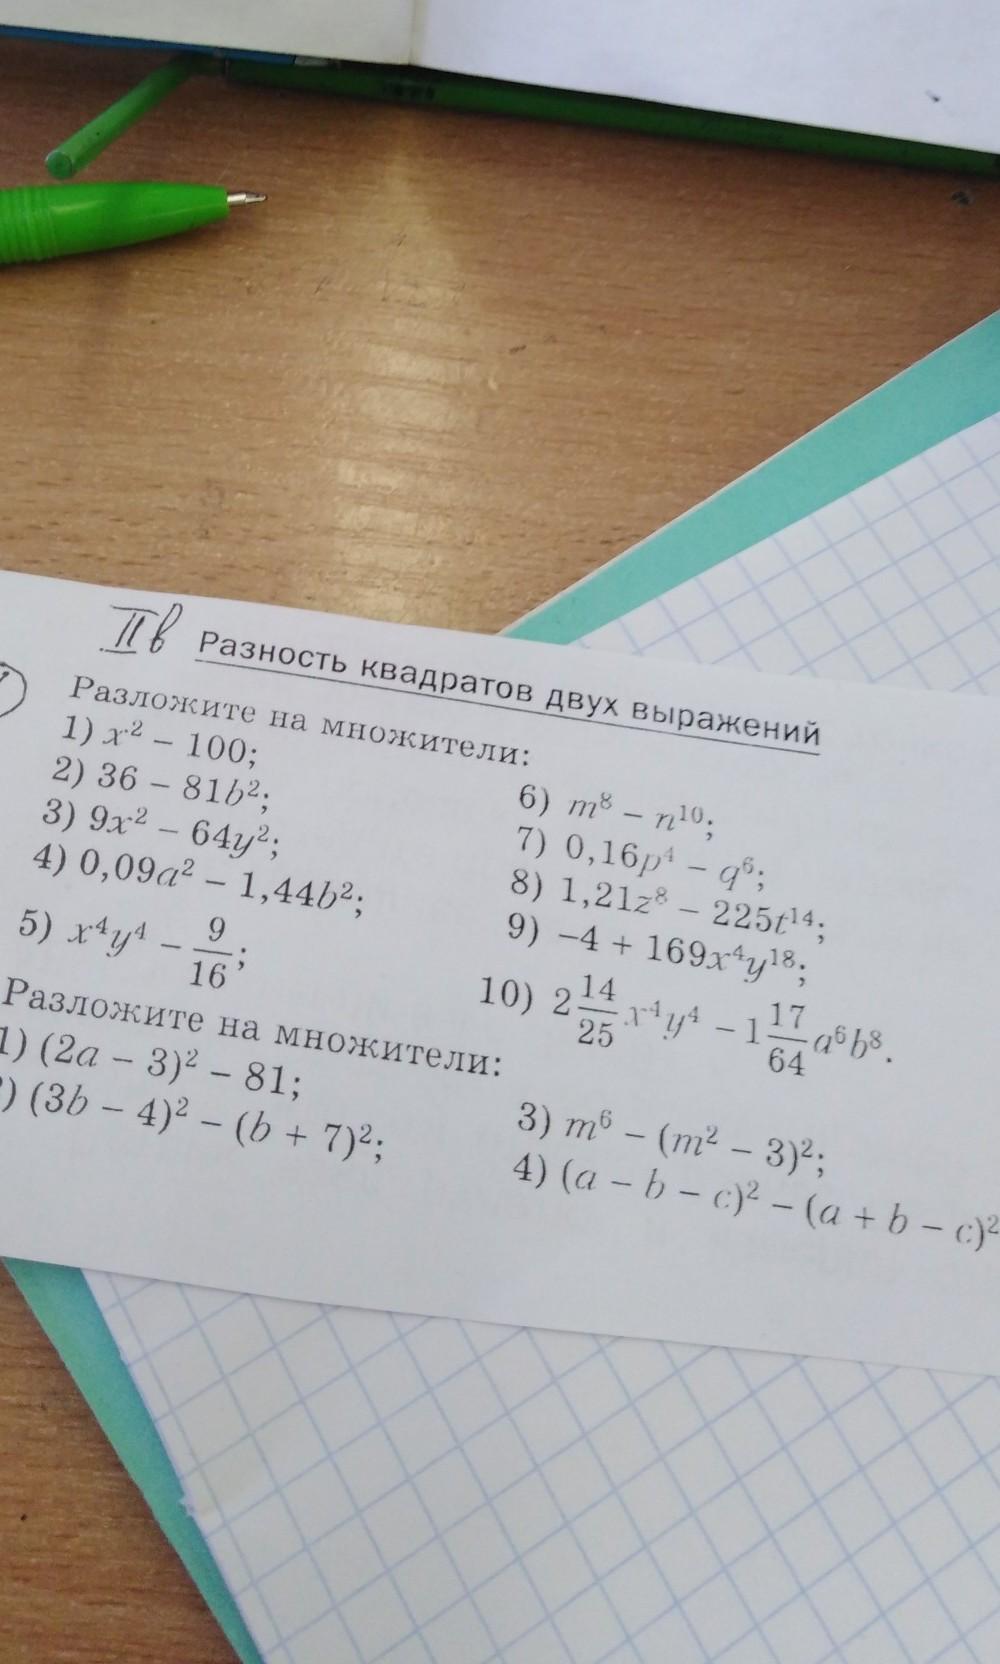 IIв Разность квадратов двух выражений
Разложите на множители:
1) x² – 100;
2) 36 – 81b²;
3) 9x² – 64y²;
4) 0,09a² – 1,44b²;
5) x⁴y⁴ – 9/16;
6) m⁸ – n¹⁰;
7) 0,16p⁴ – q⁶;
8) 1,21z⁸ – 225t¹⁴;
9) –4 + 169x⁴y¹⁸;
10) 2 14/25 x⁴y⁴ – 1 17/64 a⁶b⁸.
Разложите на множители:
1) (2a – 3)² – 81;
) (3b – 4)² – (b + 7)²;
3) m⁶ – (m² – 3)²;
4) (a – b – c)² – (a + b – c)²